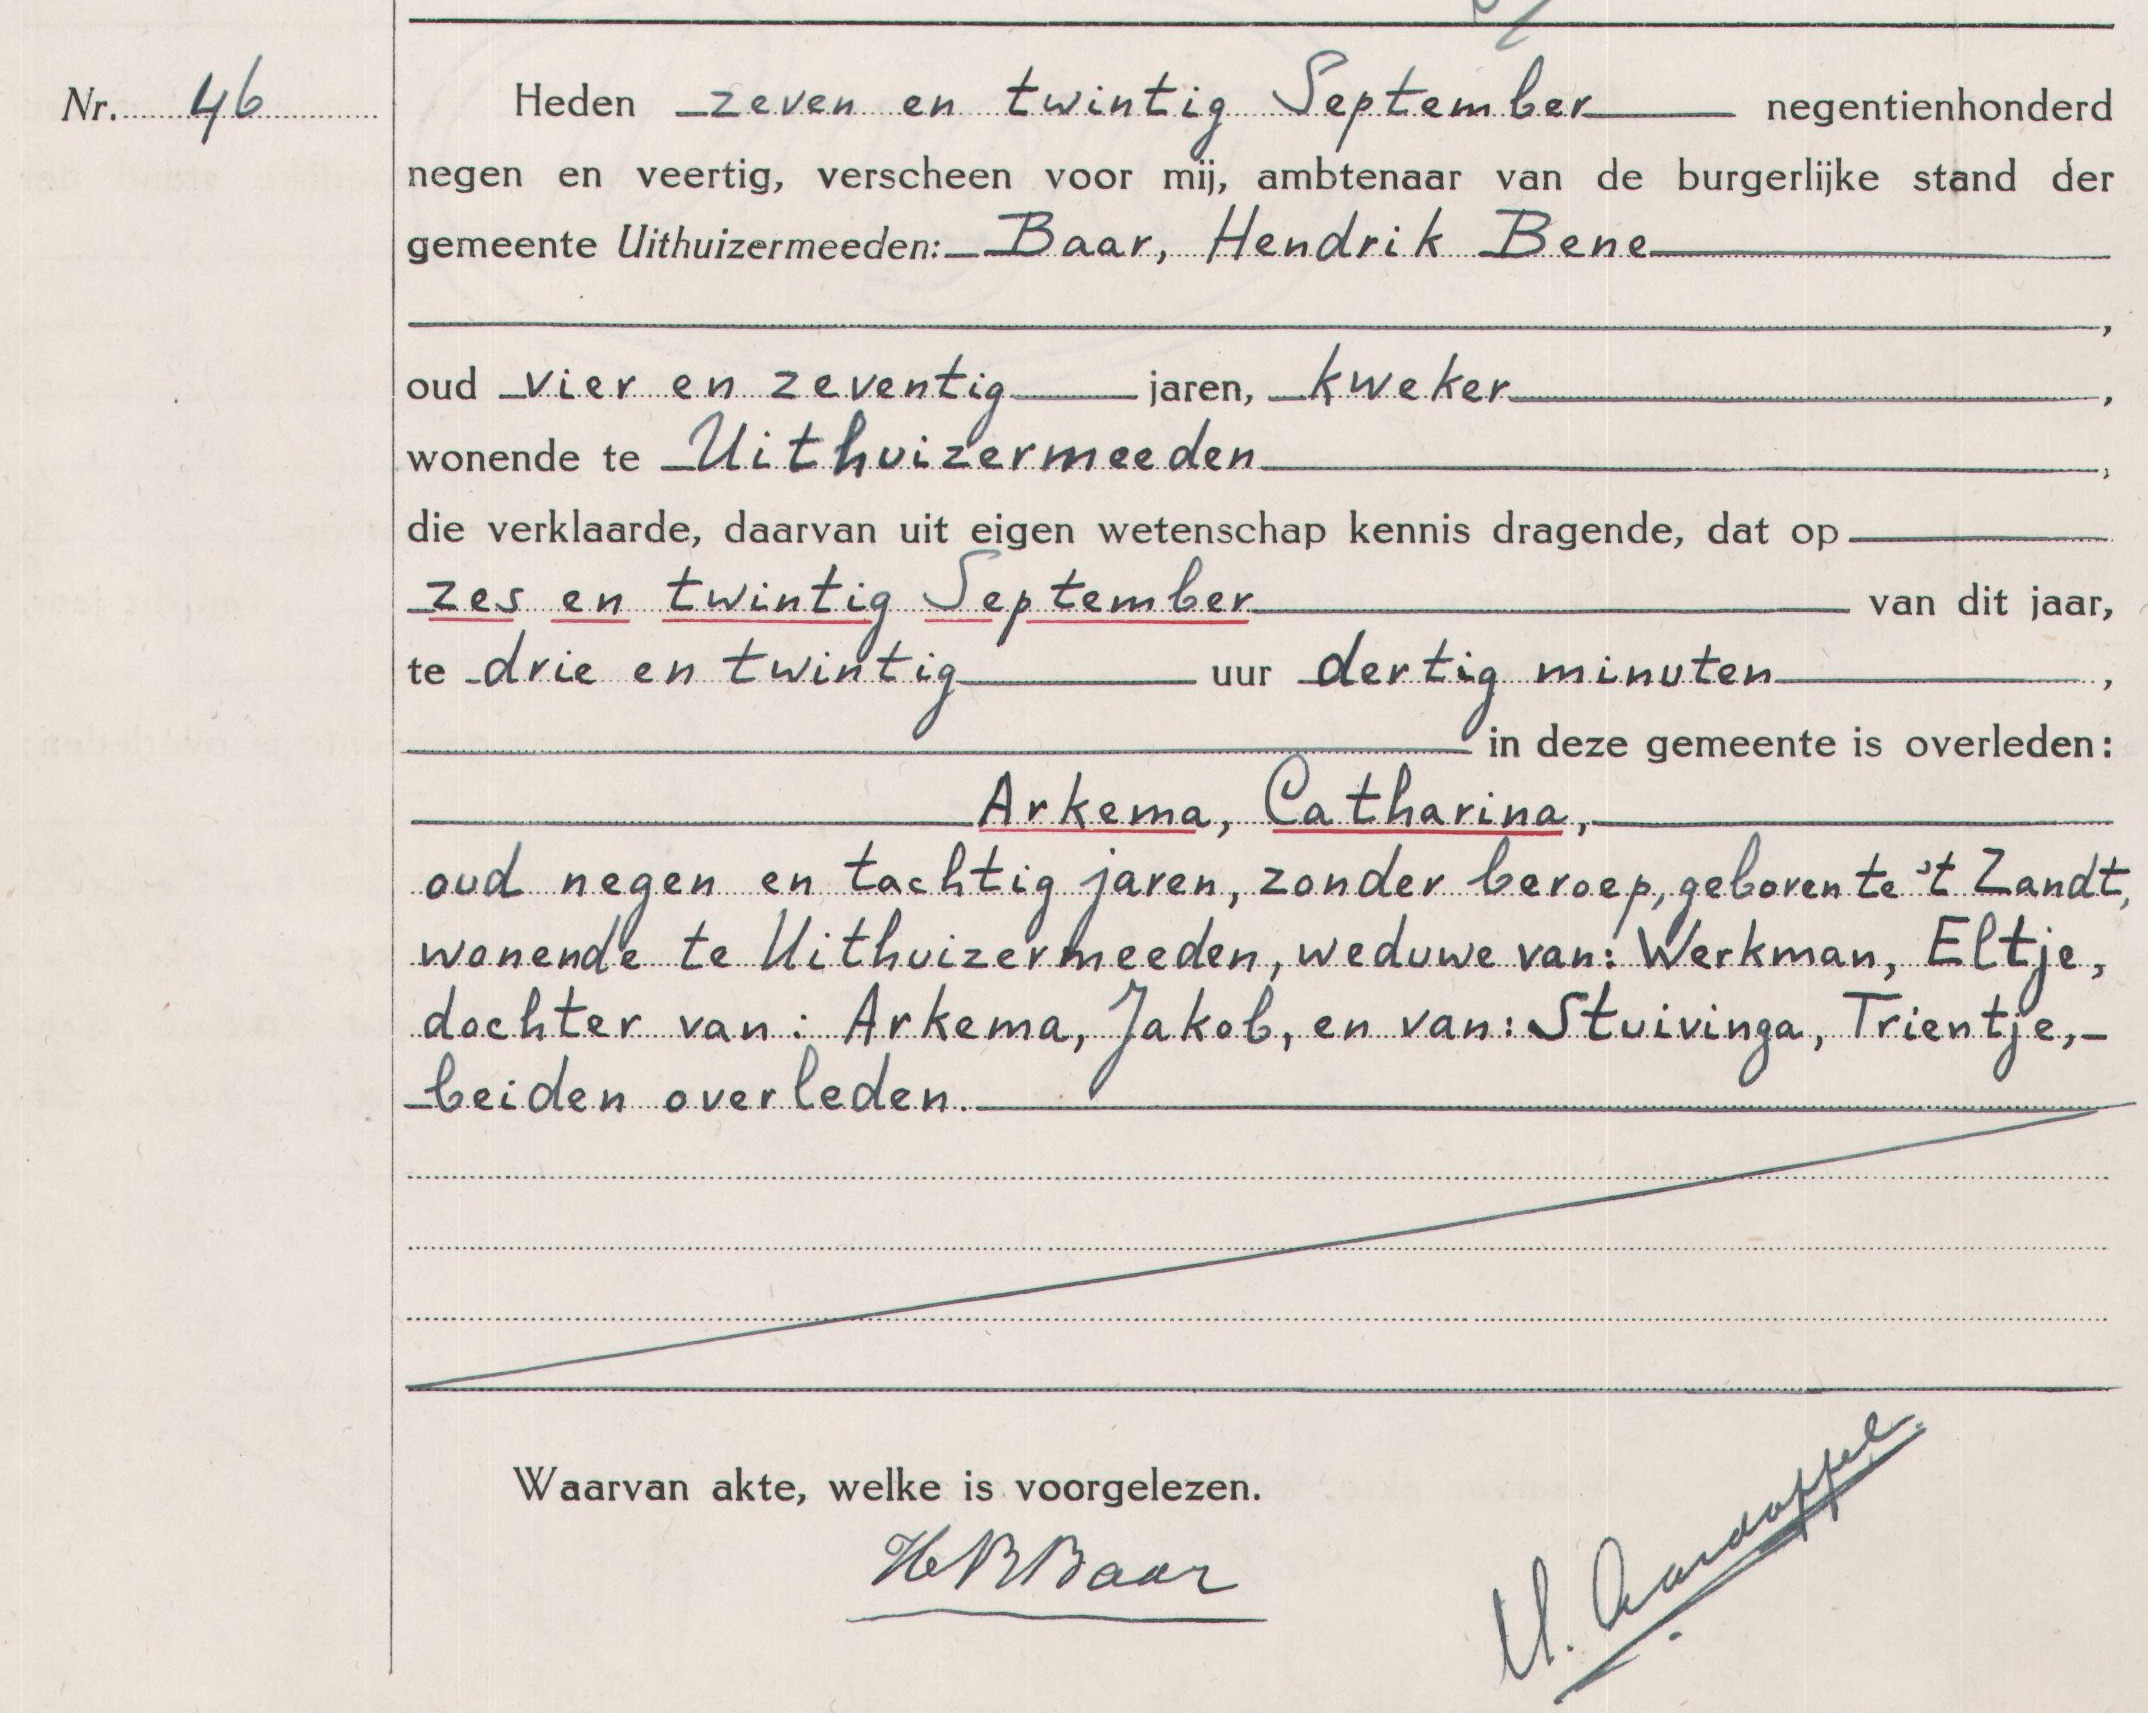 Nr. 46
Heden zeven en twintig September negentienhonderd
negen en veertig, verscheen voor mij, ambtenaar van de burgerlijke stand der
gemeente Uithuizermeeden: Baar, Hendrik Bene
,
oud vier en zeventig jaren, kweker,
wonende te Uithuizermeeden,
die verklaarde, daarvan uit eigen wetenschap kennis dragende, dat op
zes en twintig September van dit jaar,
te drie en twintig uur dertig minuten,
in deze gemeente is overleden:
Arkema, Catharina,
oud negen en tachtig jaren, zonder beroep, geboren te 't Zandt,
wonende te Uithuizermeeden, weduwe van: Werkman, Eltje,
dochter van: Arkema, Jakob, en van: Stuivinga, Trientje,
beiden overleden.
Waarvan akte, welke is voorgelezen.
HBBaar
Aardappel.